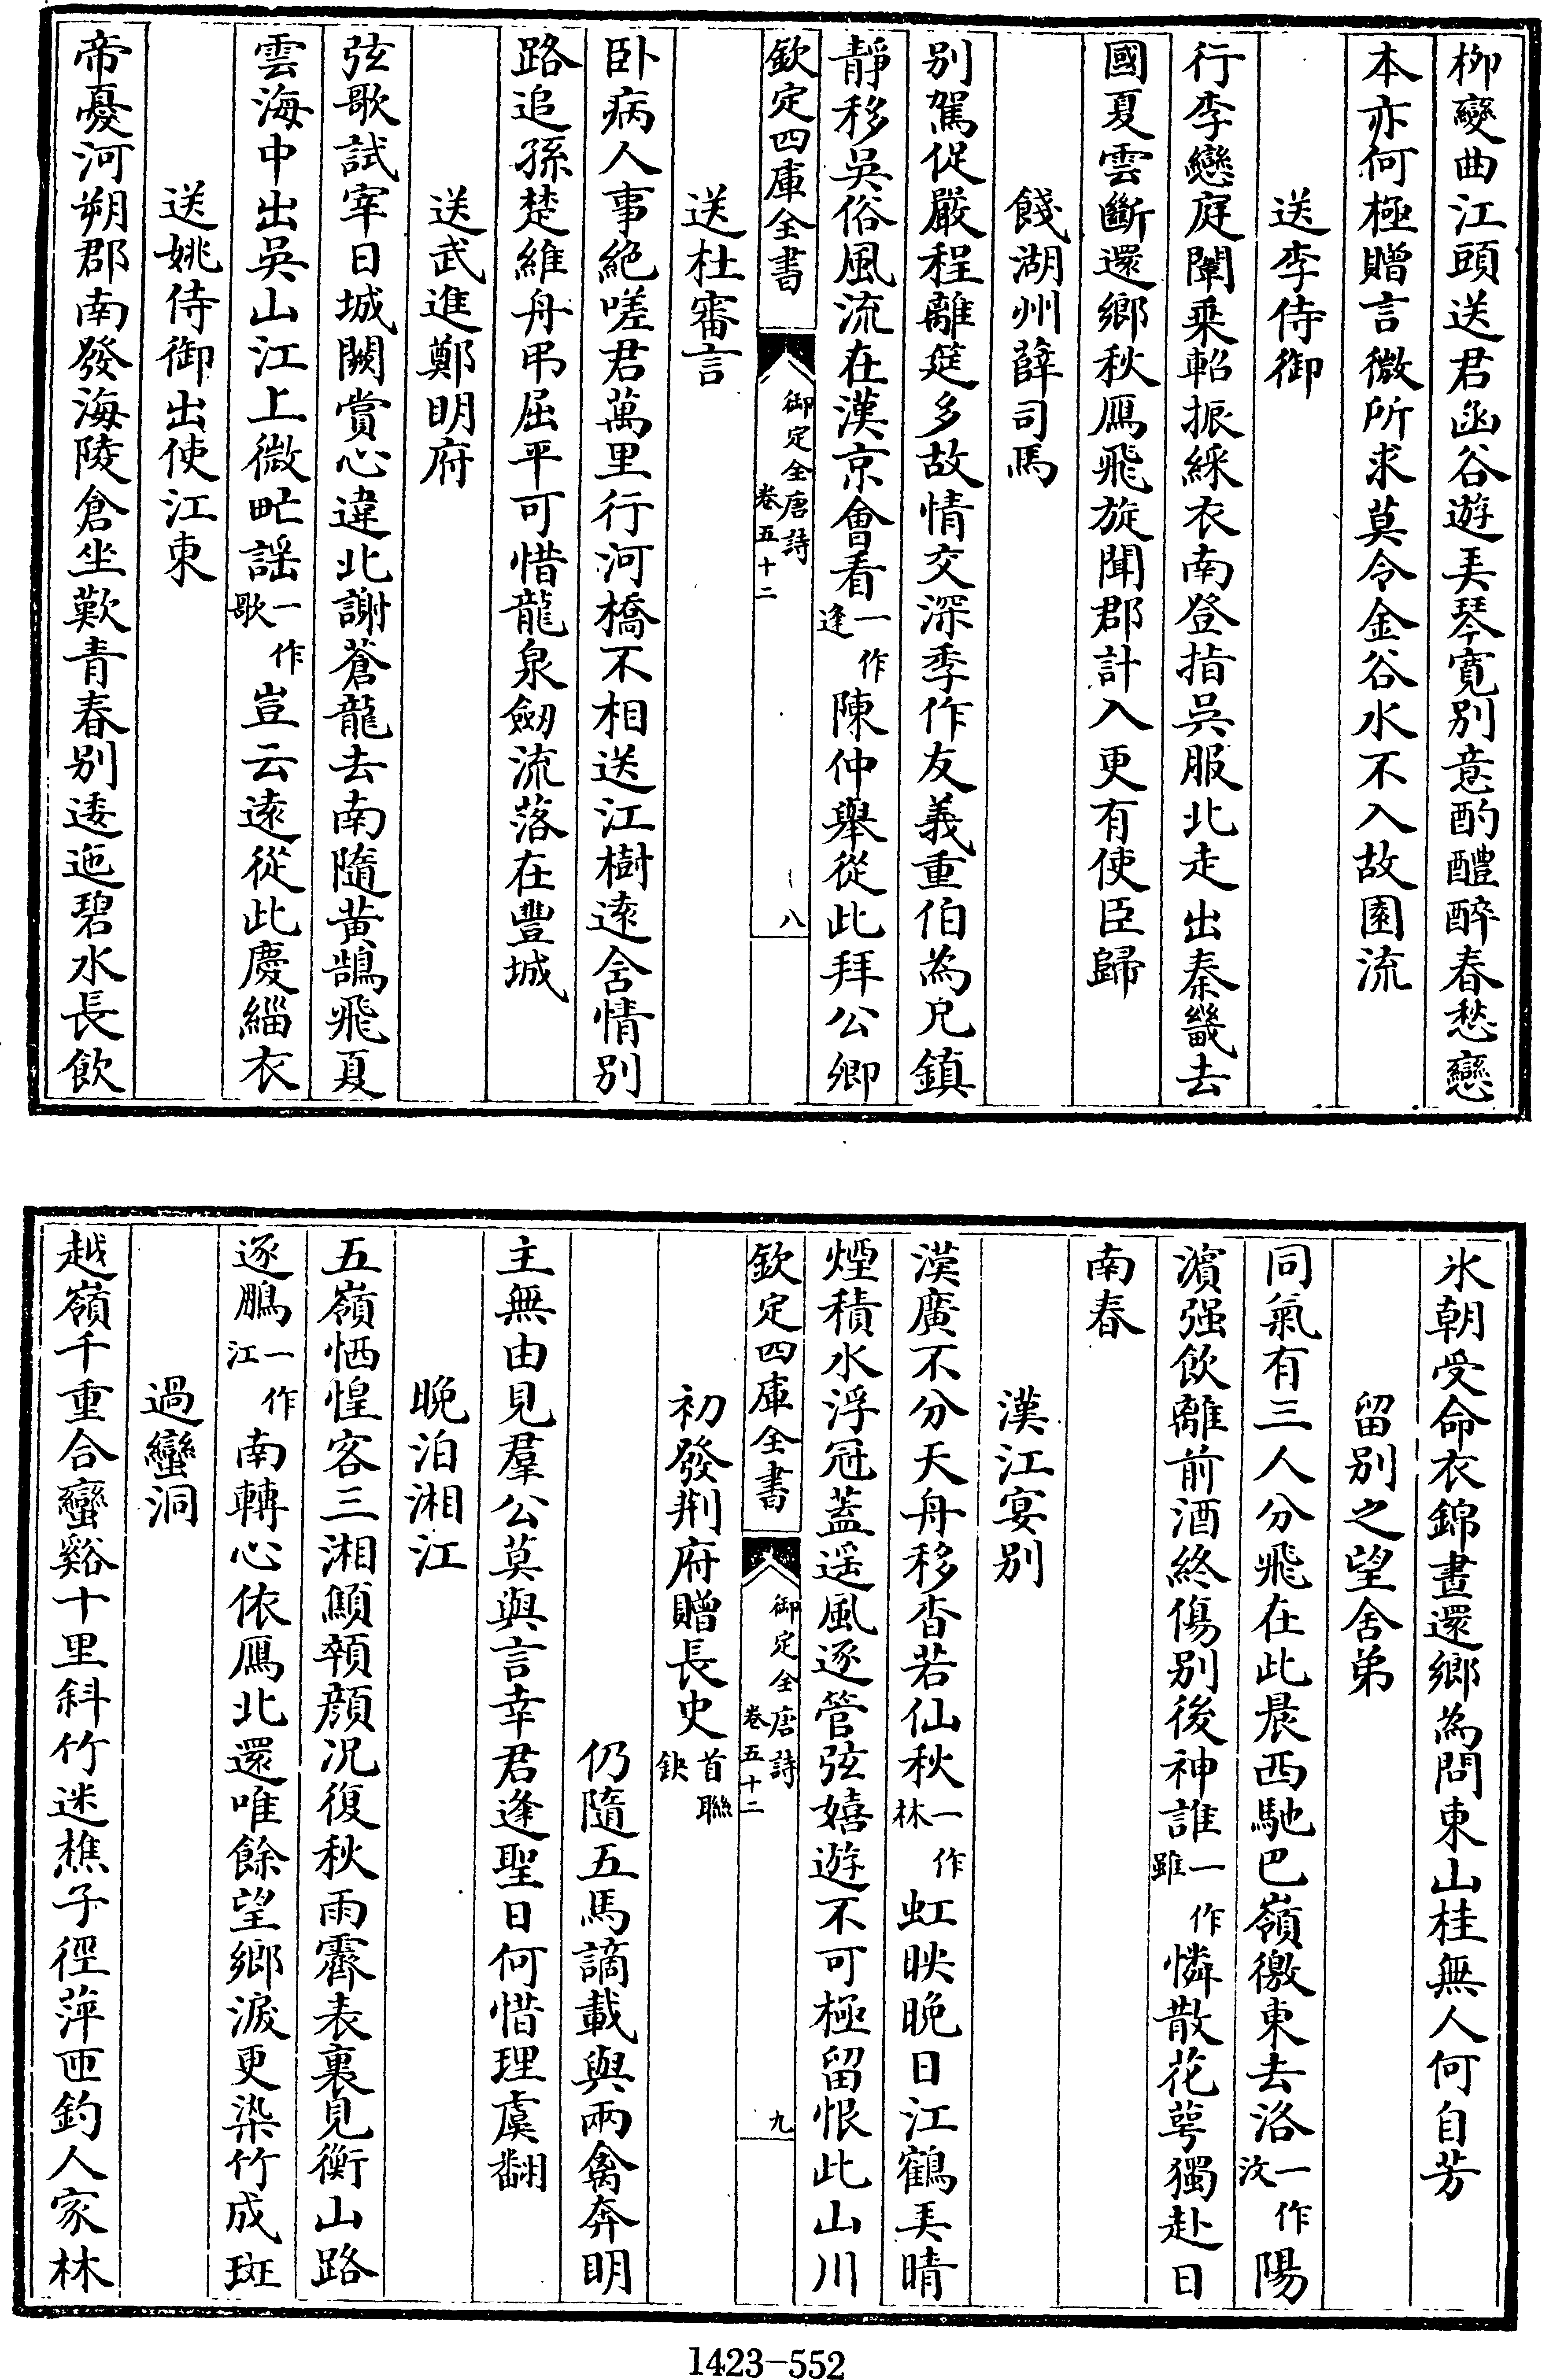 柳變曲江頭送君函谷遊弄琴寛别意酌醴醉春愁戀
本亦何極贈言微所求莫令金谷水不入故園流
送李侍御
行李戀庭闈乗軺振綵衣南登指吳服北走出秦畿去
國夏雲斷還鄉秋鴈飛旋聞郡計入更有使臣歸
餞湖州薛司馬
别駕促嚴程離筵多故情交深季作友義重伯為兄鎮
靜移吳俗風流在漢京會看一作逢陳仲舉從此拜公卿
欽定四庫全書
御定全唐詩
卷五十二
八
送杜審言
卧病人事絶嗟君萬里行河橋不相送江樹逺含情别
路追孫楚維舟弔屈平可惜龍泉劒流落在豐城
送武進鄭明府
弦歌試宰日城闕賞心違北謝蒼龍去南隨黄鵠飛夏
雲海中出吳山江上微甿謡一作歌豈云逺從此慶緇衣
送姚侍御出使江東
帝憂河朔郡南發海陵倉坐歎青春别逶迤碧水長飲
氷朝受命衣錦晝還鄉為問東山桂無人何自芳
留别之望舍弟
同氣有三人分飛在此晨西馳巴嶺徼東去洛一作汶陽
濵强飲離前酒終傷别後神誰一作雖憐散花萼獨赴日
南春
漢江宴别
漢廣不分天舟移杳若仙秋一作林虹映晩日江鶴弄晴
煙積水浮冠蓋遥風逐管弦嬉遊不可極留恨此山川
欽定四庫全書
御定全唐詩
卷五十二
九
初發荆府贈長史首聯缺
仍隨五馬謫載與兩禽奔明
主無由見羣公莫與言幸君逢聖日何惜理虞翻
晩泊湘江
五嶺恓惶客三湘顦顇顔况復秋雨霽表裏見衡山路
逐鵬一作江南轉心依鴈北還唯餘望鄉淚更染竹成斑
過蠻洞
越嶺千重合蠻谿十里斜竹迷樵子徑萍匝釣人家林
1423-552